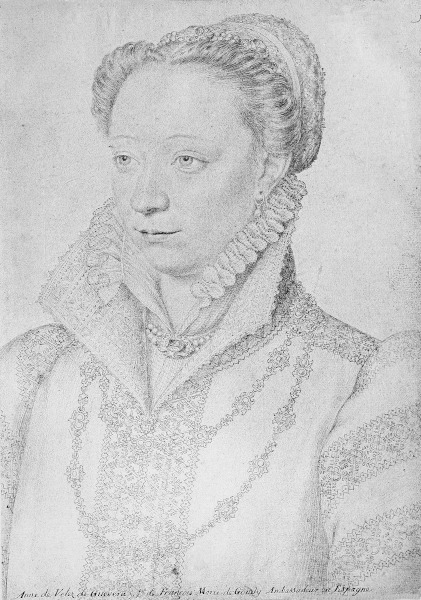 Anne de Velez de Guevera, fe. de François Marie de Gondy Ambassadeur en Espagne